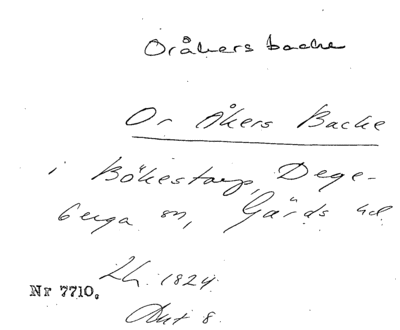 Oråkers backe
Or Åkers Backe
i Bökestorp, Dege-
berga sn, Gärds hd
Lh. 1824
Nr 7710.
Akt 8